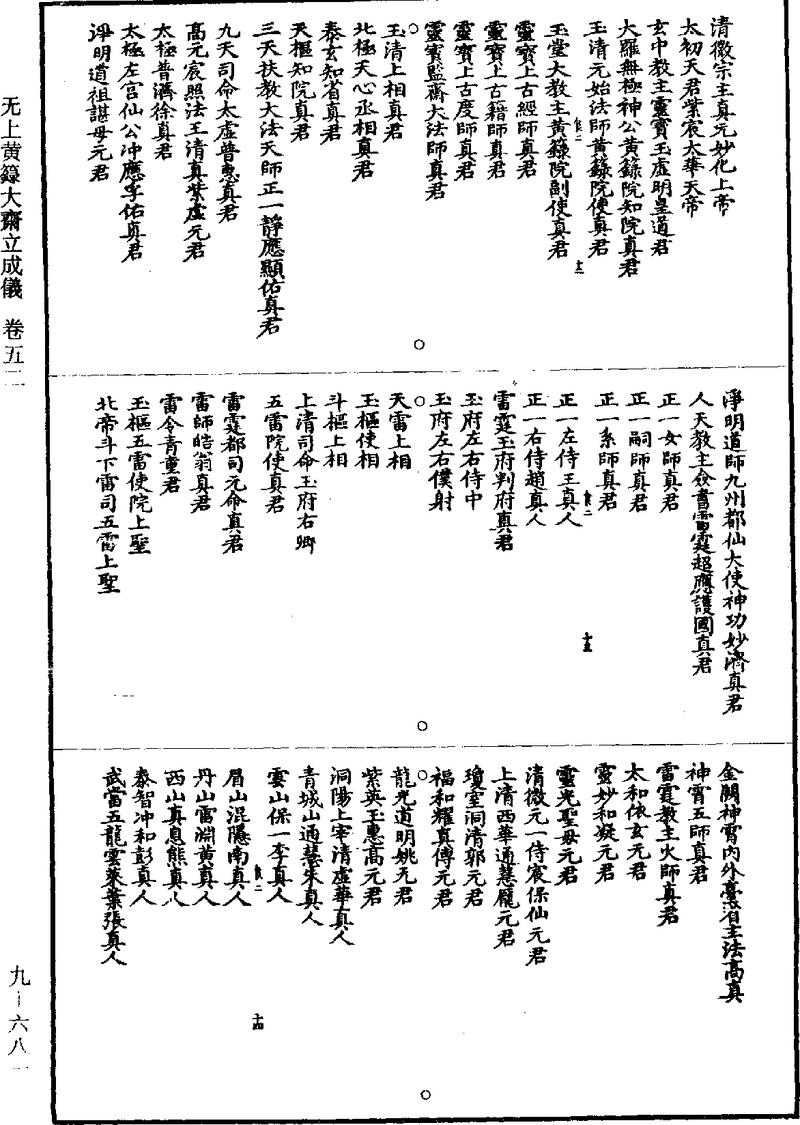 清微宗主真元妙化上帝
太初天君紫宸太華天帝
玄中教主靈寶玉虛明皇道君
大羅無極神公黃籙院知院真君
玉清元始法師黃籙院使真君
玉堂大教主黃籙院副使真君
靈寶上古經師真君
靈寶上古籍師真君
靈寶上古度師真君
靈寶監齋大法師真君
玉清上相真君
北極天心丞相真君
泰玄知省真君
天樞知院真君
三天扶教大法天師正一靜應顯佑真君
九天司命太虛普惠真君
高元宸照法王清真紫虛元君
太極普濟徐真君
太極左宮仙公沖應孚佑真君
淨明道祖諶母元君
十三
淨明道師九州都仙大使神功妙濟真君
人天教主僉書雷霆超應護國真君
正一女師真君
正一嗣師真君
正一系師真君
正一左侍王真人
正一右侍趙真人
雷霆玉府判府真君
玉府左右侍中
玉府左右僕射
天雷上相
玉樞使相
斗樞上相
上清司命玉府右卿
五雷院使真君
雷霆都司元命真君
雷師皓翁真君
雷令青童君
玉樞五雷使院上聖
北帝斗下雷司五雷上聖
金闕神霄內外臺省主法高真
神霄五師真君
雷霆教主火師真君
太和依玄元君
靈妙和凝元君
靈光聖母元君
清微元一侍宸保仙元君
上清西華通慧龐元君
瓊室洞清郭元君
福和耀真傅元君
龍光道明姚元君
紫英玉惠高元君
洞陽上宰清虛華真人
青城山通慧朱真人
雲山保一李真人
眉山混隱南真人
丹山雷淵黃真人
西山真息熊真人
泰智沖和彭真人
武當五龍雲萊葉張真人
十四
无上黃籙大齋立成儀 卷五二
九—六八一